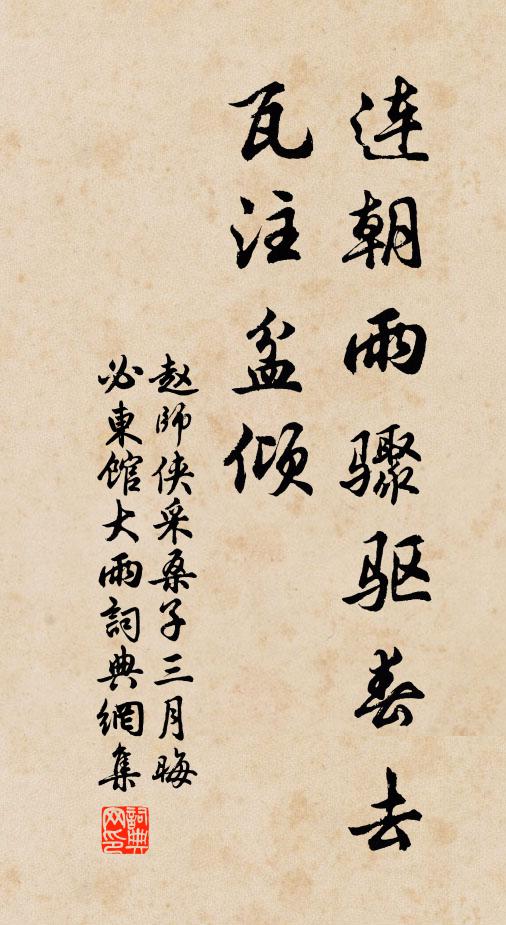 连朝雨骤驱春去
瓦注盆倾
赵师侠采桑子三月晦
必东馆大雨词典网集
词典网印